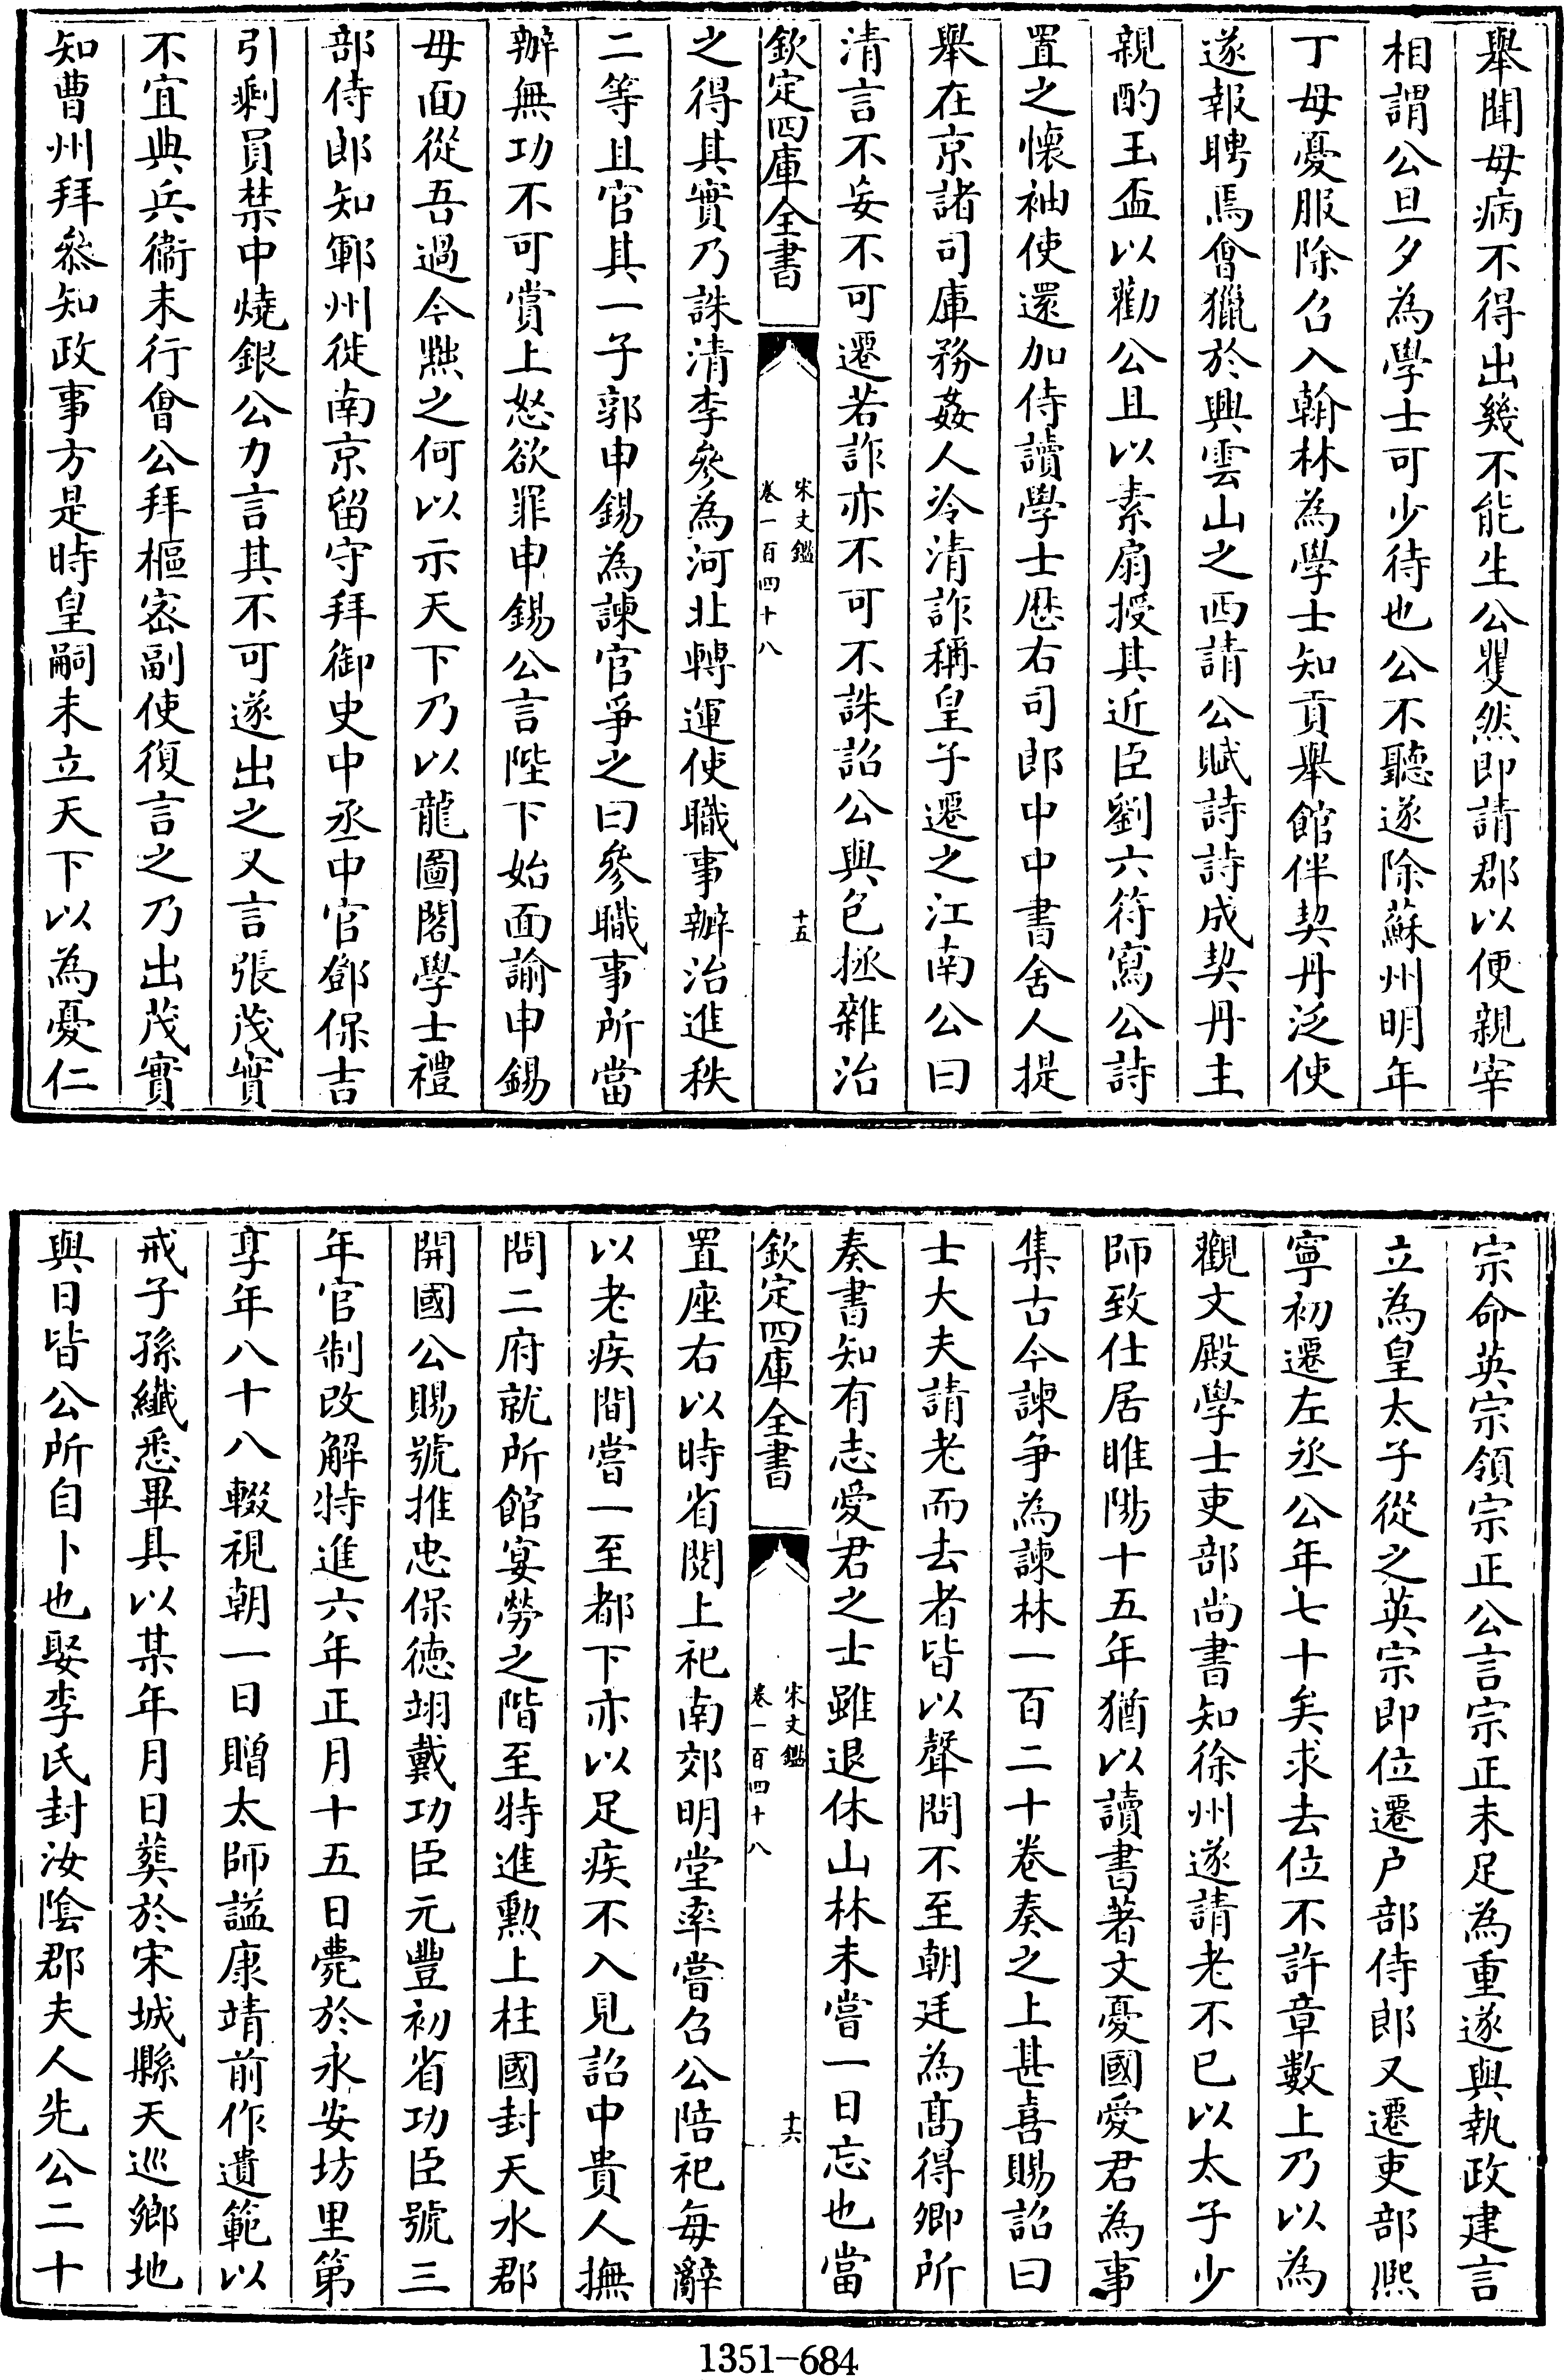 舉聞母病不得出幾不能生公矍然即請郡以便親宰
相謂公旦夕為學士可少待也公不聽遂除蘇州明年
丁母憂服除召入翰林為學士知貢舉館伴契丹泛使
遂報聘焉會獵於興雲山之西請公賦詩詩成契丹主
親酌玉盃以勸公且以素扇授其近臣劉六符寫公詩
置之懷袖使還加侍讀學士歴右司郎中中書舍人提
舉在京諸司庫務姦人冷清詐稱皇子遷之江南公曰
清言不妄不可遷若詐亦不可不誅詔公與包拯雜治
欽定四庫全書
宋文鑑
卷一百四十八
十五
之得其實乃誅清李參為河北轉運使職事辦治進秩
二等且官其一子郭申錫為諫官爭之曰參職事所當
辦無功不可賞上怒欲罪申錫公言陛下始面諭申錫
毋面從吾過今黜之何以示天下乃以龍圖閣學士禮
部侍郎知鄆州徙南京留守拜御史中丞中官鄧保吉
引剩員禁中燒銀公力言其不可遂出之又言張茂實
不宜典兵衞未行會公拜樞密副使復言之乃出茂實
知曹州拜叅知政事方是時皇嗣未立天下以為憂仁
宗命英宗領宗正公言宗正未足為重遂與執政建言
立為皇太子從之英宗即位遷户部侍郎又遷吏部熈
寧初遷左丞公年七十矣求去位不許章數上乃以為
觀文殿學士吏部尚書知徐州遂請老不已以太子少
師致仕居睢陽十五年猶以讀書著文憂國愛君為事
集古今諫争為諫林一百二十卷奏之上甚喜賜詔曰
士大夫請老而去者皆以聲問不至朝廷為髙得卿所
奏書知有志愛君之士雖退休山林未嘗一日忘也當
欽定四庫全書
宋文鑑
卷一百四十八
十六
置座右以時省閱上祀南郊明堂率嘗召公陪祀每辭
以老疾間嘗一至都下亦以足疾不入見詔中貴人撫
問二府就所館宴勞之階至特進勲上柱國封天水郡
開國公賜號推忠保德翊戴功臣元豐初省功臣號三
年官制改解特進六年正月十五日薨於永安坊里第
享年八十八輟視朝一日贈太師諡康靖前作遺範以
戒子孫纖悉畢具以某年月日葬於宋城縣天巡鄉地
與日皆公所自卜也娶李氏封汝隂郡夫人先公二十
1351-684